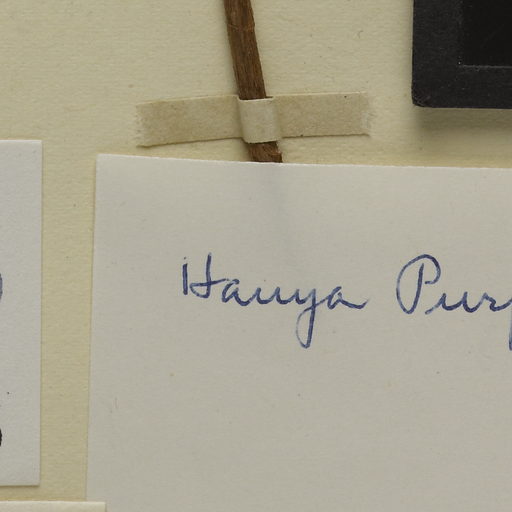 Hanya Purp